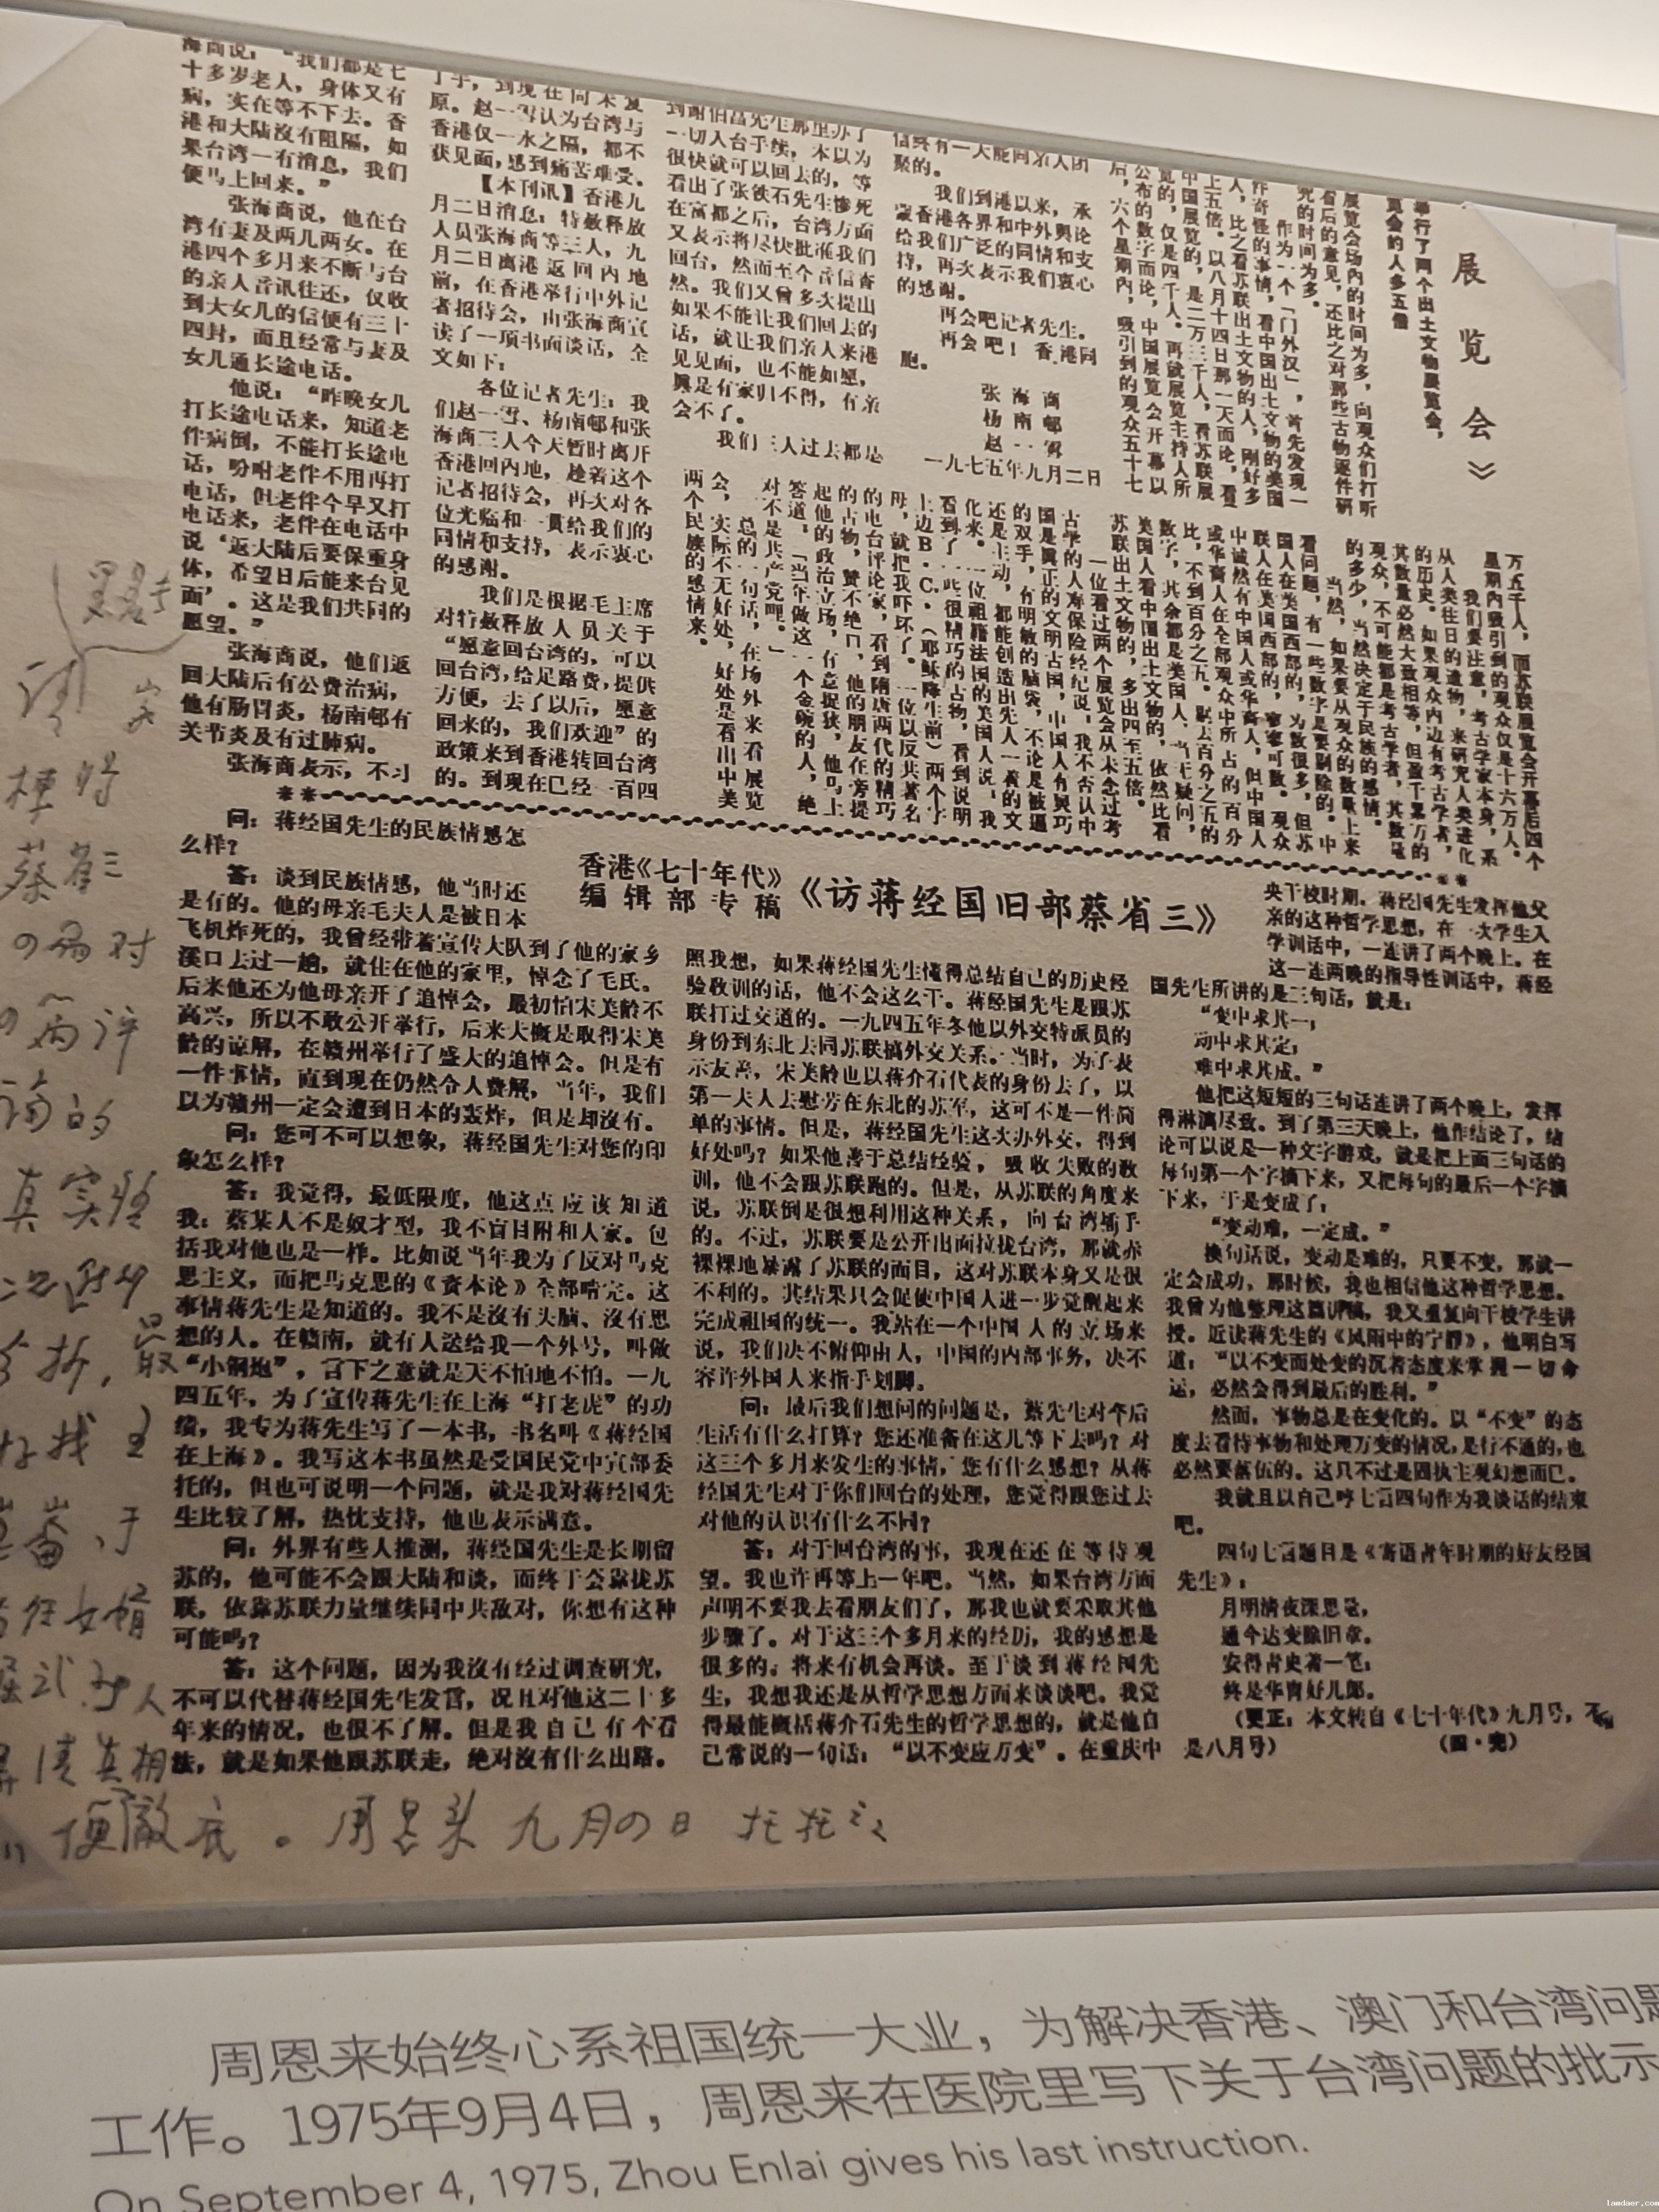 海商说：“我们都是七
十多岁老人，身体又有
病，实在等不下去。香
港和大陆没有阻隔，如
果台湾一有消息，我们
便马上回来。”
张海商说，他在台
湾有妻及两儿两女。在
港四个多月来不断与台
的亲人音讯往还，仅收
到大女儿的信便有三十
四封，而且经常与妻及
女儿通长途电话。
他说：“昨晚女儿
打长途电话来，知道老
伴病倒，不能打长途电
话，吩咐老伴不用再打
电话，但老伴今早又打
电话来，老伴在电话中
说‘返大陆后要保重身
体，希望日后能来台见
面’。这是我们共同的
愿望。”
张海商说，他们返
回大陆后有公费治病，
他有肠胃炎，杨南邨有
关节炎及有过肺病。
张海商表示，不习
原。赵一雪认为台湾与
香港仅一水之隔，都不
获见面，感到痛苦难受。
【本刊讯】香港九
月二日消息：特赦释放
人员张海商等三人，九
月二日离港返回内地
前，在香港举行中外记
者招待会，由张海商宣
读了一项书面谈话，全
文如下：
各位记者先生：我
们赵一雪、杨南邨和张
海商三人今天暂时离开
香港回内地，趁着这个
记者招待会，再次对各
位光临和一贯给我们的
同情和支持，表示衷心
的感谢。
我们是根据毛主席
对特赦释放人员关于
“愿意回台湾的，可以
回台湾，给足路费，提供
方便，去了以后，愿意
回来的，我们欢迎”的
政策来到香港转回台湾
的。到现在已经一百四
到谢伯昌先生那里办了
一切入台手续，本以为
很快就可以回去的，等
看出了张铁石先生惨死
在富都之后，台湾方面
又表示将尽快批准我们
回台，然而至今音信杳
然。我们又曾多次提出
如果不能让我们回去的
话，就让我们亲人来港
见见面，也不能如愿，
真是有家归不得，有亲
会不了。
我们三人过去都是
信终有一天能同亲人团
聚的。
我们到港以来，承
蒙香港各界和中外舆论
给我们广泛的同情和支
持，再次表示我们衷心
的感谢。
再会吧记者先生。
再会吧！香港同
胞。
张海商
杨南邨
赵一雪
一九七五年九月二日
展览会》
举行了两个出土文物展览会，
览会的人多五倍
展览会场内的时间为多，向观众们打听
看后的意见，还比之对那些古物逐件研
究的时间为多。
作为一个「门外汉」，首先发现一
件奇怪的事情，看中国出土文物的美国
人，比之看苏联出土文物的人，刚好多
上五倍。以八月十四日那一天而论，看
中国展览的，是二万三千人，看苏联展
览的，仅是四千人。再就展览主持人所
公布的数字而论，中国展览会开幕以
后，六个星期内，吸引到的观众五十七
万五千人，而苏联展览会开幕后四个
星期内吸引到的观众仅是十六万人。
我们要注意，考古学家本身，系
从人类往日的遗物，来研究人类进化
的历史。如果观众内边有考古学者，
其数量必然大致相等，但盈千累万的
观众，不可能都是考古学者，其数量
的多少，当然决定于民族的感情。
当然，如果要从观众的数量上来
看问题，有一些数字是要剔除的。中
国人在美国西部的，为数很多，但苏
联人在美国西部的，寥寥可数。观众
中诚然有中国人或华裔人，但中国人
或华裔人在全部观众中所占的百分
比，不到百分之五。剔去百分之五的
数字，其余都是美国人，当无疑问，
美国人看中国出土文物的，依然比看
苏联出土文物的，多出四至五倍。
一位看过两个展览会从未念过考
古学的人寿保险经纪说，我不否认中
国是真正的文明古国，中国人有奥巧
的双手，有明敏的脑袋，不论是被逼
还是主动，都能创造出先人一着的文
化来。一位祖籍法国的美国人说，我
看到了一些很精巧的古物，看到说明
上边B·C·（耶稣降生前）两个字
母，就把我吓坏了。一位以反共著名
的电台评论家，看到隋唐两代的精巧
的古物，赞不绝口，他的朋友在旁提
起他的政治立场，有意捉狭，他马上
答道，「当年做这一个金碗的人，绝
对不是共产党哩。」
总的一句话，在场外来看展览
会，实际不无好处，好处是看出中美
两个民族的感情来。
香港《七十年代》
编辑部专稿
《访蒋经国旧部蔡省三》
问：蒋经国先生的民族情感怎
么样？
答：谈到民族情感，他当时还
是有的。他的母亲毛夫人是被日本
飞机炸死的，我曾经带着宣传大队到了他的家乡
溪口去过一趟，就住在他的家里，悼念了毛氏。
后来他还为他母亲开了追悼会，最初怕宋美龄不
高兴，所以不敢公开举行，后来大概是取得宋美
龄的谅解，在赣州举行了盛大的追悼会。但是有
一件事情，直到现在仍然令人费解，当年，我们
以为赣州一定会遭到日本的轰炸，但是却没有。
问：您可不可以想象，蒋经国先生对您的印
象怎么样？
答：我觉得，最低限度，他这点应该知道
我：蔡某人不是奴才型，我不盲目附和人家。包
括我对他也是一样。比如说当年我为了反对马克
思主义，而把马克思的《资本论》全部啃完。这
事情蒋先生是知道的。我不是没有头脑、没有思
想的人。在赣南，就有人送给我一个外号，叫做
“小钢炮”，言下之意就是天不怕地不怕。一九
四五年，为了宣传蒋先生在上海“打老虎”的功
绩，我专为蒋先生写了一本书，书名叫《蒋经国
在上海》。我写这本书虽然是受国民党中宣部委
托的，但也可说明一个问题，就是我对蒋经国先
生比较了解，热忱支持，他也表示满意。
问：外界有些人推测，蒋经国先生是长期留
苏的，他可能不会跟大陆和谈，而终于会靠拢苏
联，依靠苏联力量继续同中共敌对，你想有这种
可能吗？
答：这个问题，因为我没有经过调查研究，
不可以代替蒋经国先生发言，况且对他这二十多
年来的情况，也很不了解。但是我自己有个看
法，就是如果他跟苏联走，绝对没有什么出路。
照我想，如果蒋经国先生懂得总结自己的历史经
验教训的话，他不会这么干。蒋经国先生是跟苏
联打过交道的。一九四五年冬他以外交特派员的
身份到东北去同苏联搞外交关系。当时，为了表
示友善，宋美龄也以蒋介石代表的身份去了，以
第一夫人去慰劳在东北的苏军，这可不是一件简
单的事情。但是，蒋经国先生这次办外交，得到
好处吗？如果他善于总结经验，吸收失败的教
训，他不会跟苏联跑的。但是，从苏联的角度来
说，苏联倒是很想利用这种关系，向台湾插手
的。不过，苏联要是公开出面拉拢台湾，那就赤
裸裸地暴露了苏联的面目，这对苏联本身又是很
不利的。其结果只会促使中国人进一步觉醒起来
完成祖国的统一。我站在一个中国人的立场来
说，我们决不俯仰由人，中国的内部事务，决不
容许外国人来指手划脚。
问：最后我们想问的问题是，蔡先生对今后
生活有什么打算？您还准备在这儿等下去吗？对
这三个多月来发生的事情，您有什么感想？从蒋
经国先生对于你们回台的处理，您觉得跟您过去
对他的认识有什么不同？
答：对于回台湾的事，我现在还在等待观
望。我也许再等上一年吧。当然，如果台湾方面
声明不要我去看朋友们了，那我也就要采取其他
步骤了。对于这三个多月来的经历，我的感想是
很多的，将来有机会再谈。至于谈到蒋经国先
生，我想我还是从哲学思想方面来谈谈吧。我觉
得最能概括蒋介石先生的哲学思想的，就是他自
己常说的一句话：“以不变应万变”。在重庆中
央干校时期，蒋经国先生发挥他父
亲的这种哲学思想，在一次学生入
学训话中，一连讲了两个晚上。在
这一连两晚的指导性训话中，蒋经
国先生所讲的是三句话，就是：
“变中求其一；
动中求其定；
难中求其成。”
他把这短短的三句话连讲了两个晚上，发挥
得淋漓尽致。到了第三天晚上，他作结论了，结
论可以说是一种文字游戏，就是把上面三句话的
每句第一个字摘下来，又把每句的最后一个字摘
下来，于是变成了：
“变动难，一定成。”
换句话说，变动是难的，只要不变，那就一
定会成功，那时候，我也相信他这种哲学思想。
我曾为他整理这篇讲稿，我又重复向干校学生讲
授。近读蒋先生的《风雨中的宁静》，他明白写
道：“以不变而处变的沉着态度来掌握一切命
运，必然会得到最后的胜利。”
然而，事物总是在变化的。以“不变”的态
度去看待事物和处理万变的情况，是行不通的，也
必然要落伍的。这只不过是固执主观幻想而已。
我就且以自己哼七言四句作为我谈话的结束
吧。
四句七言题目是《寄语青年时期的好友经国
先生》：
月明清夜深思量，
通今达变除旧章。
安得青史著一笔；
终是华胄好儿郎。
（更正：本文转自《七十年代》九月号，不
是八月号）
（四·完）
请
蔡省三
真实性
便彻底。周恩来 九月四日 托托托
周恩来始终心系祖国统一大业，为解决香港、澳门和台湾问题
工作。1975年9月4日，周恩来在医院里写下关于台湾问题的批示
On September 4, 1975, Zhou Enlai gives his last instruction.
lamdaer.com